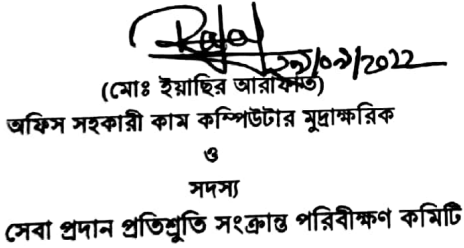 ২৯/০৯/2022
(মোঃ ইয়াছির আরাফাত)
অফিস সহকারী কাম কম্পিউটার মুদ্রাক্ষরিক
ও
সদস্য
সেবা প্রদান প্রতিশ্রুতি সংক্রান্ত পরিবীক্ষণ কমিটি